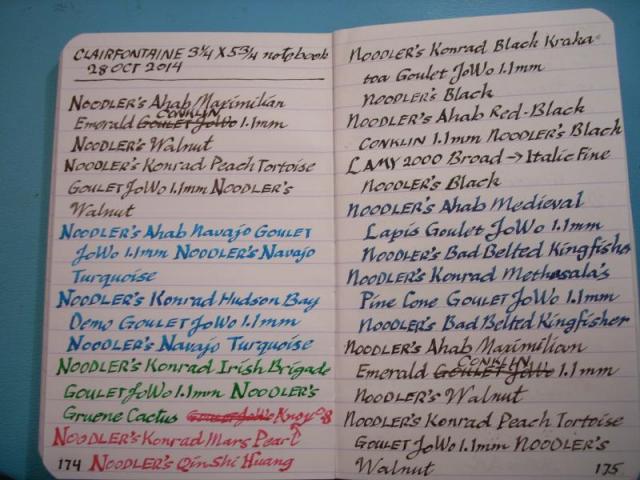 CLAIRFONTAINE 3¼ X 5¾ notebook
28 OCT 2014
NOODLER'S Ahab Maximilian
CONKLIN
Emerald GOULET JoWo 1.1mm
NOODLER'S Walnut
NOODLER'S Konrad Peach Tortoise
GOULET JoWo 1.1mm NOODLER'S
Walnut
NOODLER'S Ahab Navajo GOULET
JoWo 1.1mm NOODLER'S Navajo
Turquoise
NOODLER'S Konrad Hudson Bay
Demo GOULET JoWo 1.1mm
NOODLER'S Navajo Turquoise
NOODLER'S Konrad Irish Brigade
GOULET JoWo 1.1mm NOODLER'S
Gruene Cactus GOULET JoWo
NOODLER'S Konrad Mars Pearl
174 NOODLER'S QinShi Huang
NOODLER'S Konrad Black Kraka
toa Goulet JoWo 1.1mm
NOODLER'S Black
NOODLER'S Ahab Red-Black
CONKLIN 1.1mm NOODLER'S Black
LAMY 2000 Broad → Italic Fine
NOODLER'S Black
NOODLER'S Ahab Medieval
Lapis Goulet JoWo 1.1mm
NOODLER'S Bad Belted Kingfisher
NOODLER'S Konrad Methusala's
Pine Cone GOULET JoWo 1.1mm
NOODLER'S Bad Belted Kingfisher
NOODLER'S Ahab Maximilian
CONKLIN
Emerald GOULET JoWo 1.1mm
NOODLER'S Walnut
NOODLER'S Konrad Peach Tortoise
GOULET JoWo 1.1mm NOODLER'S
Walnut 175